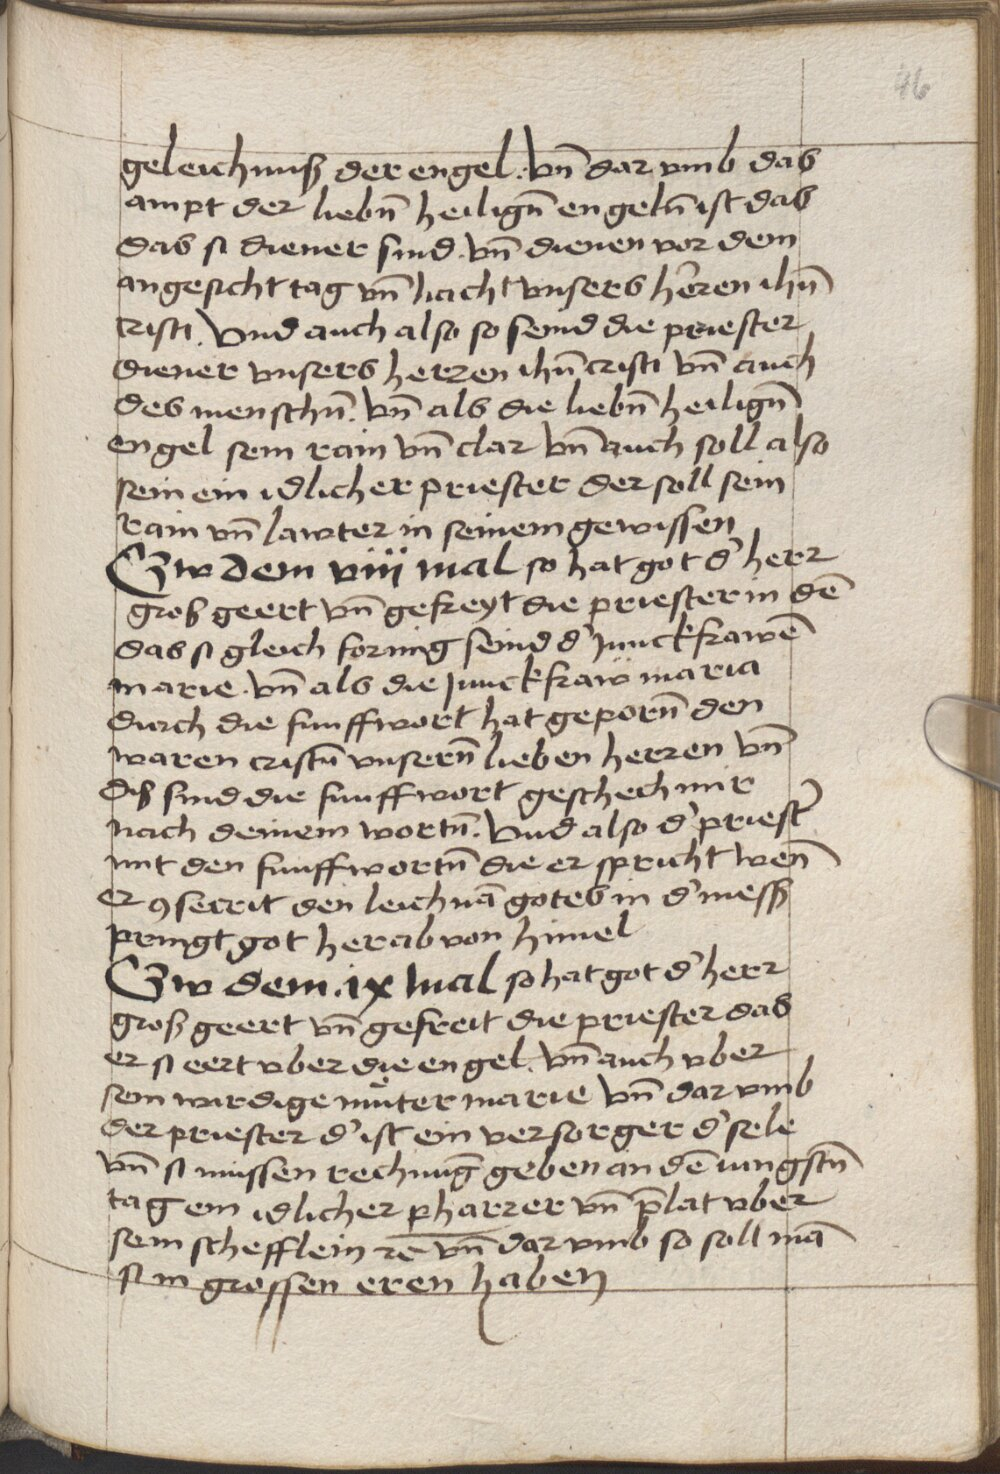 46
geleichnuß der engel. vn̄ dar vmb das
ampt der liebn̄ heilign̄ engeln̄ ist das
das si diener sind. vn̄ dienen vor dem
angesicht tag vn̄ nacht vnsers herren ihū
cristi. Vnd auch also so seind die priester
diener vnsers herren ihū cristi vn̄ auch
des menschn̄. vn̄ als die liebn̄ heilign̄
engel sein rain vn̄ clar vn̄ auch soll also
sein ein idlicher priester der soll sein
rain vn̄ lawter in seinem gewissen
Czw dem viii mal so hat got d' herr
groß geert vn̄ gefreyt die priester in dē
das si gleich formig seind d' Junckfrawē
marie. vn̄ als die Junckfraw maria
durch die funff wort hat geporn̄ den
waren cristū vnsern̄ lieben herren vn̄
diß sind die funff wort geschech mir
nach deinem wortn̄. Vnd also d' priest'
mit den funff wortn̄ die er spricht wen̄
er ꝯsecrit den leichnā gotes in d' meß
pringt got herab von himel
Czw dem .ix mal so hat got d' herr
groß geert vn̄ gefreit die priester das
er si eert vber die engel. vn̄ auch vber
sein wirdige muter marie vn̄ dar vmb
der priester d' ist ein versorger d' sele
vn̄ si mussen rechnūg geben an dē iungstn̄
tag ein idlicher pharrer vn̄ p̄lat vber
sein schefflein ⁊c̄ vn̄ dar vmb so soll mā
si in grossen eren haben